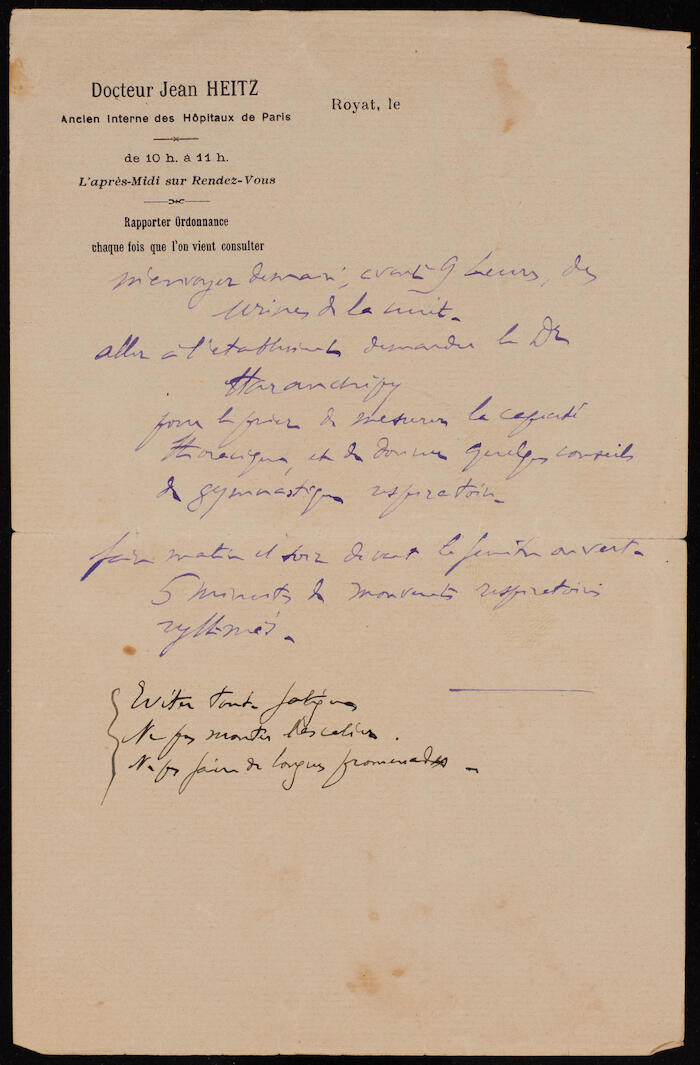 Docteur Jean HEITZ
Ancien Interne des Hôpitaux de Paris
de 10 h. à 11 h.
L'après-Midi sur Rendez-Vous
Rapporter Ordonnance
chaque fois que l'on vient consulter
Royat, le
m'envoyer demain, avant 9 heures, des
urines de la nuit.
aller à l'établissement demander le Dr
pour le prier de mesurer la capacité
thoracique, et de donner quelques conseils
de gymnastique respiratoire.
faire matin et soir devant la fenêtre ouverte
5 minutes de mouvements respiratoires
rythmés.
Eviter toute fatigue
Ne pas monter l'escalier.
Ne pas faire de longues promenades.